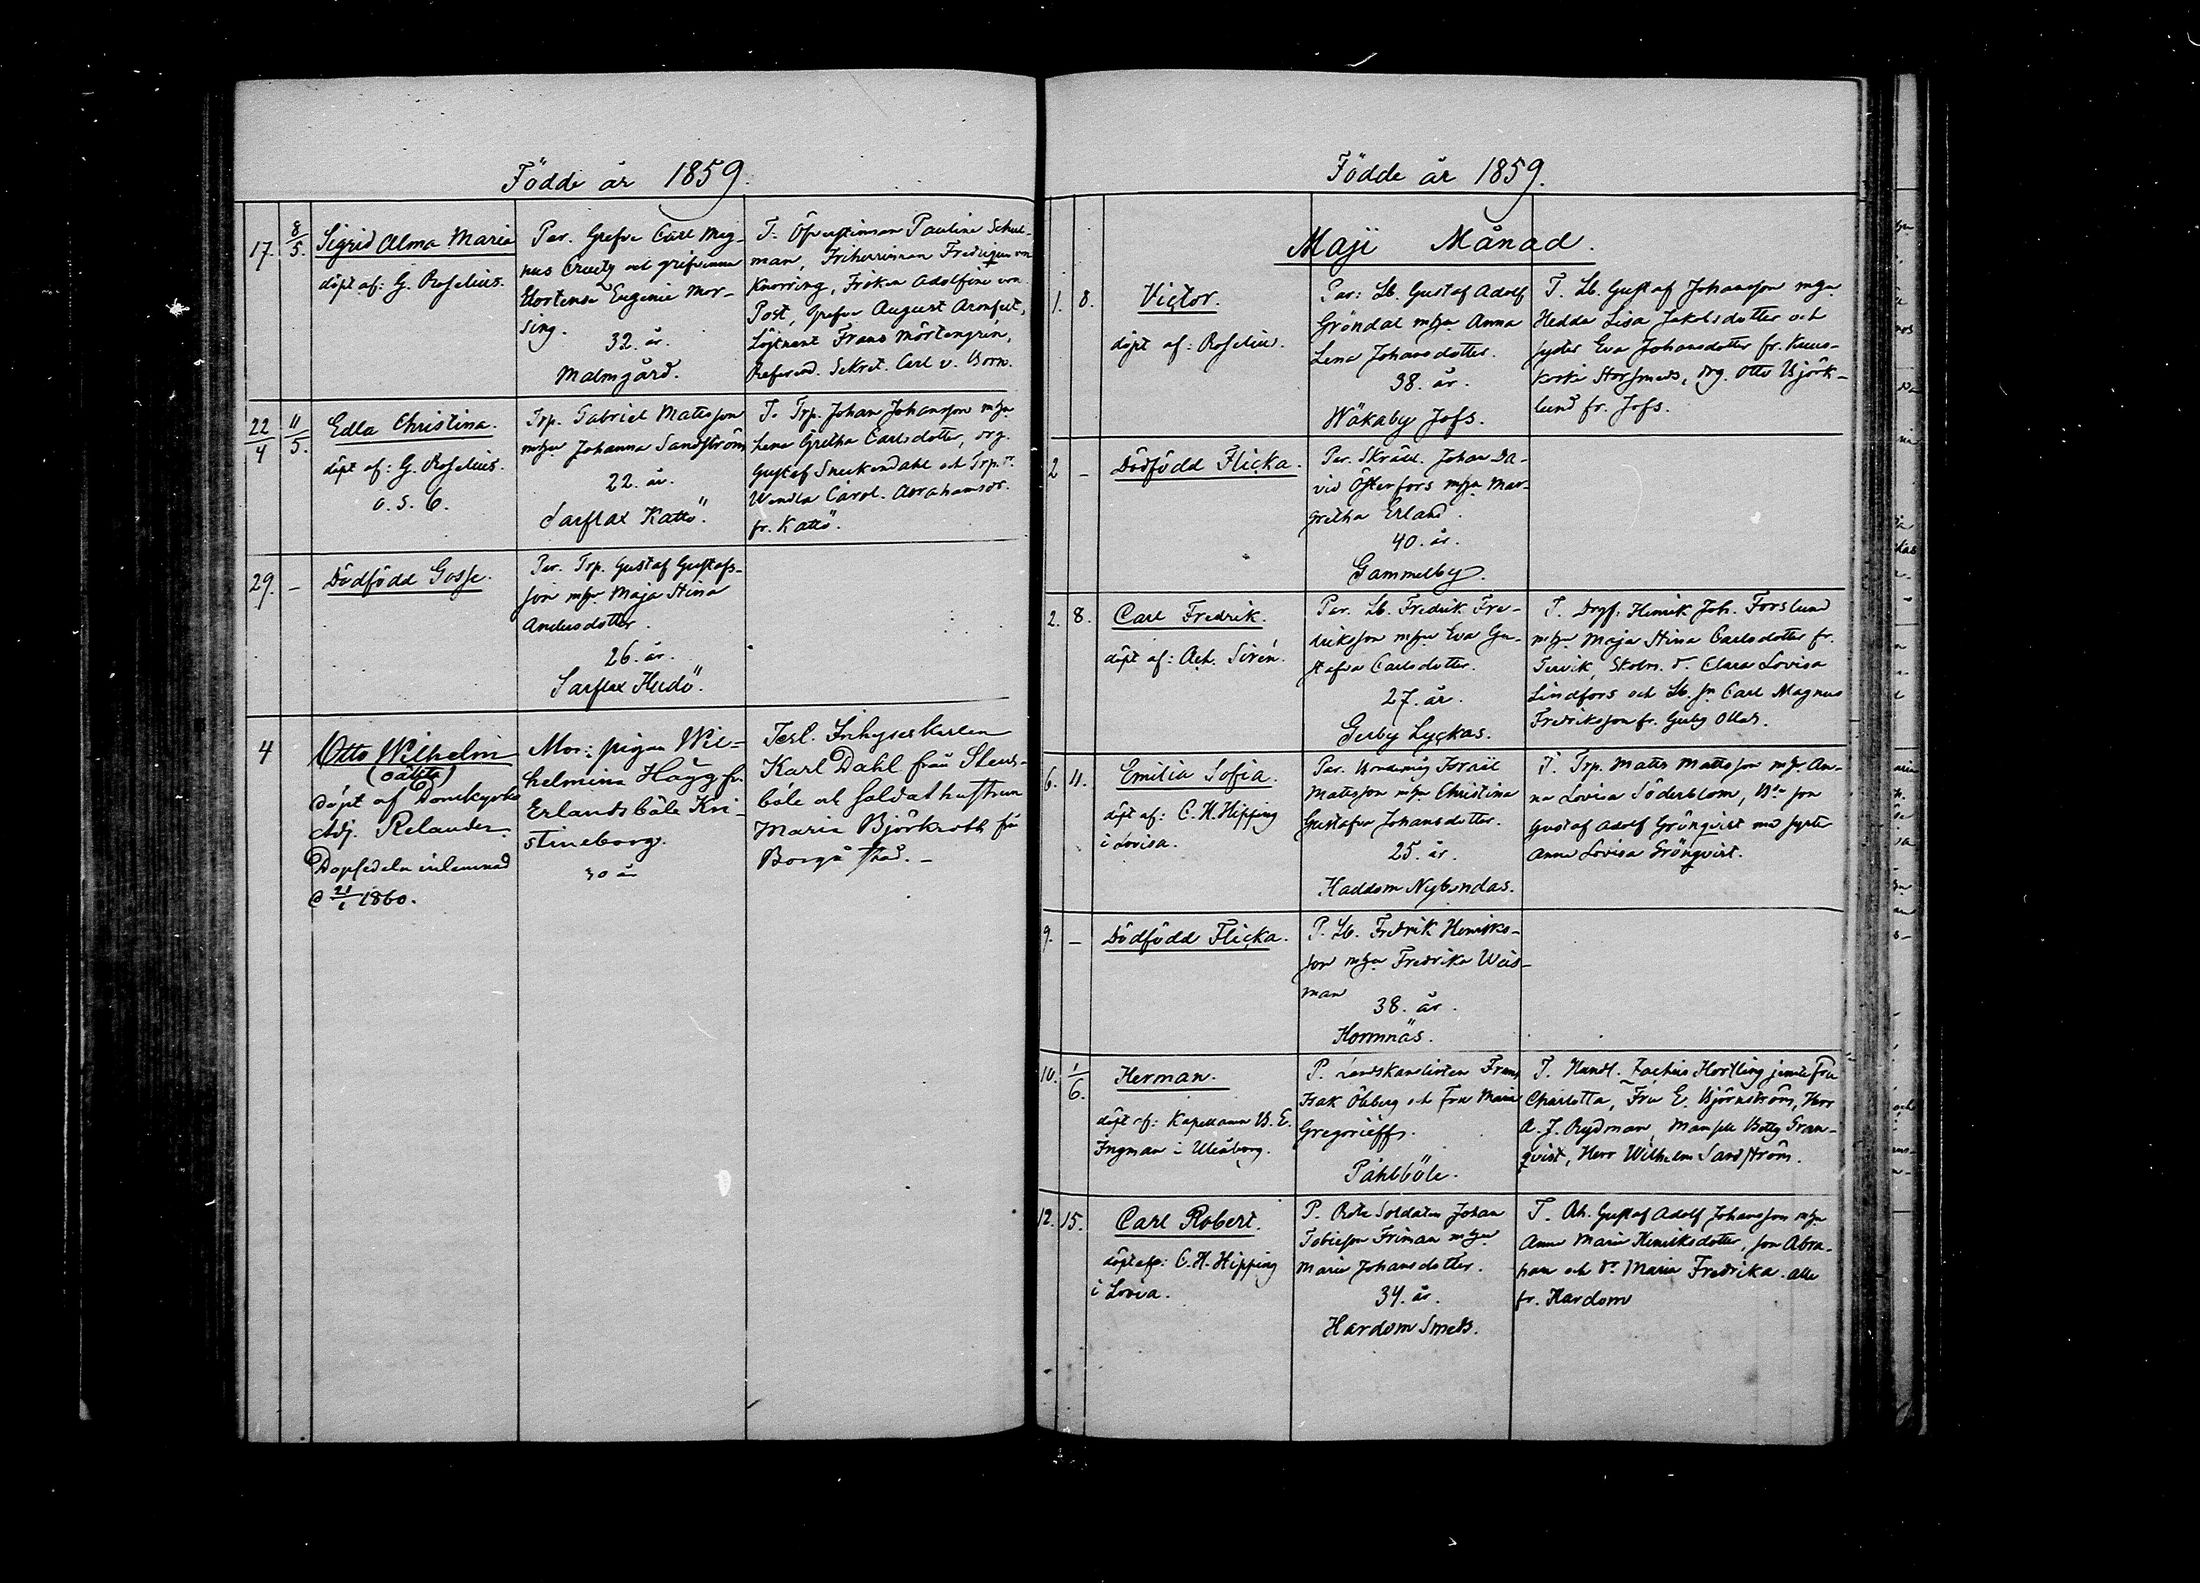 Födde år 1859.
17. 8/5. Sigrid Alma Maria
döpt af: G. Roselius.
Par. Grefve Carl Mag-
nus Creutz och grefvinnan
Hortense Eugenie Mör-
sing.
32. år.
Malmgård.
T. Öfverstinnan Pauline Schul-
man, Friherrinnan Fredrique von
Knorring, Fröken Adolfine von
Post, Grefve August Armfelt,
Löjtnant Frans Mörtengren,
Referend. Sekret. Carl v. Born.
22/4 11/5. Edla Christina.
döpt af: G. Roselius.
o. s. 6.
Trp. Gabriel Matsson
mhu Johanna Sandström
22. år.
Sarflax Kattö.
T. Trp. Johan Johansson mhu
Lena Gretha Carlsdotter, drg.
Gustaf Sneckendahl och Trp. dr.
Wendla Carol. Abrahamsdr.
fr. Kattö.
29. – Dödfödd Gosse.
Par. Trp. Gustaf Gustafs-
son mhu Maja Stina
Andersdotter.
26. år.
Sarflax Hudö.
4 Otto Wilhelm
(oäkta)
döpt af Domkyrko
Adj. Relander.
Dopsedeln inlemnad
d 21/1 1860.
Mor: pigan Wil-
helmina Hägg fr.
Erlandsböle Kri-
stineborg.
30 år
Test. Inhyseskarlen
Karl Dahl från Stens-
böle och Soldathustrun
Maria Björkroth från
Borgå stad. –
Födde år 1859.
Maji Månad.
1. 8. Victor.
döpt af: Roselius.
Par: Lb. Gustaf Adolf
Gröndal mhu Anna
Lena Johansdotter.
38. år.
Wåkaby Jofs.
T. Lb. Gustaf Johansson mhu
Hedda Lisa Jakobsdotter och
syster Eva Johansdotter fr. Kuus-
koski Storsmeds, drg. Otto Björk-
lund fr. Jofs.
2 – Dödfödd Flicka.
Par. Skrädd. Johan Da-
vid Österfors mhu Mar-
gretha Erland.
40. år.
Gammelby.
2. 8. Carl Fredrik.
döpt af: Ach. Sirén.
Par. Lb. Fredrik Fre-
driksson mhu Eva Gu-
stafva Carlsdotter.
27. år.
Gerby Lyckas.
T. Drgf. Henrik Joh. Forslund
mhu Maja Stina Carlsdotter fr.
Tervik, Skolm. d. Clara Lovisa
Lindfors och Lb. sn Carl Magnus
Fredriksson fr. Gerby Ollas.
6. 11. Emilia Sofia.
döpt af: C. H. Hipping
i Lovisa.
Par. Bondemåg Israël
Matsson mhu Christina
Gustafva Johansdotter.
25. år.
Haddom Nybondas.
T. Trp. Matts Mattsson mhu An-
na Lovisa Söderblom, Bde son
Gustaf Adolf Grönqvist med syster
Anna Lovisa Grönqvist.
9. – Dödfödd Flicka.
P. Lb. Fredrik Henriks-
son mhu Fredrika Weis-
man
38. år.
Hormnäs.
10. 1/6. Herman.
döpt af: Kapellanen B. E.
Ingman i Uleåborg.
P. Landskanslisten Frans
Isak Öhberg och Fru Maria
Gregorieff.
Påhlböle.
T. Handl. Hortling jemte Fru
Charlotta, Fru E. Björnström, Herr
A. J. Rydman, Mamsell Betty Gran-
qvist, Herr Wilhelm Sandström.
12. 15. Carl Robert.
döpt af: C. H. Hipping
i Lovisa.
P. Rote Soldaten Johan
Tobiesson Friman mhu
Maria Johansdotter.
34. år.
Hardom Smeds.
T. Ah. Gustaf Adolf Johansson mhu
Anna Maria Henriksdotter, son Abra-
ham och dr. Maria Fredrika. alla
fr. Hardom